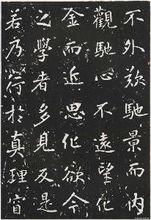 不外馳景而內
觀馳心不遠望化
金而近思化欲今
之學者多見反是
若乃於真理